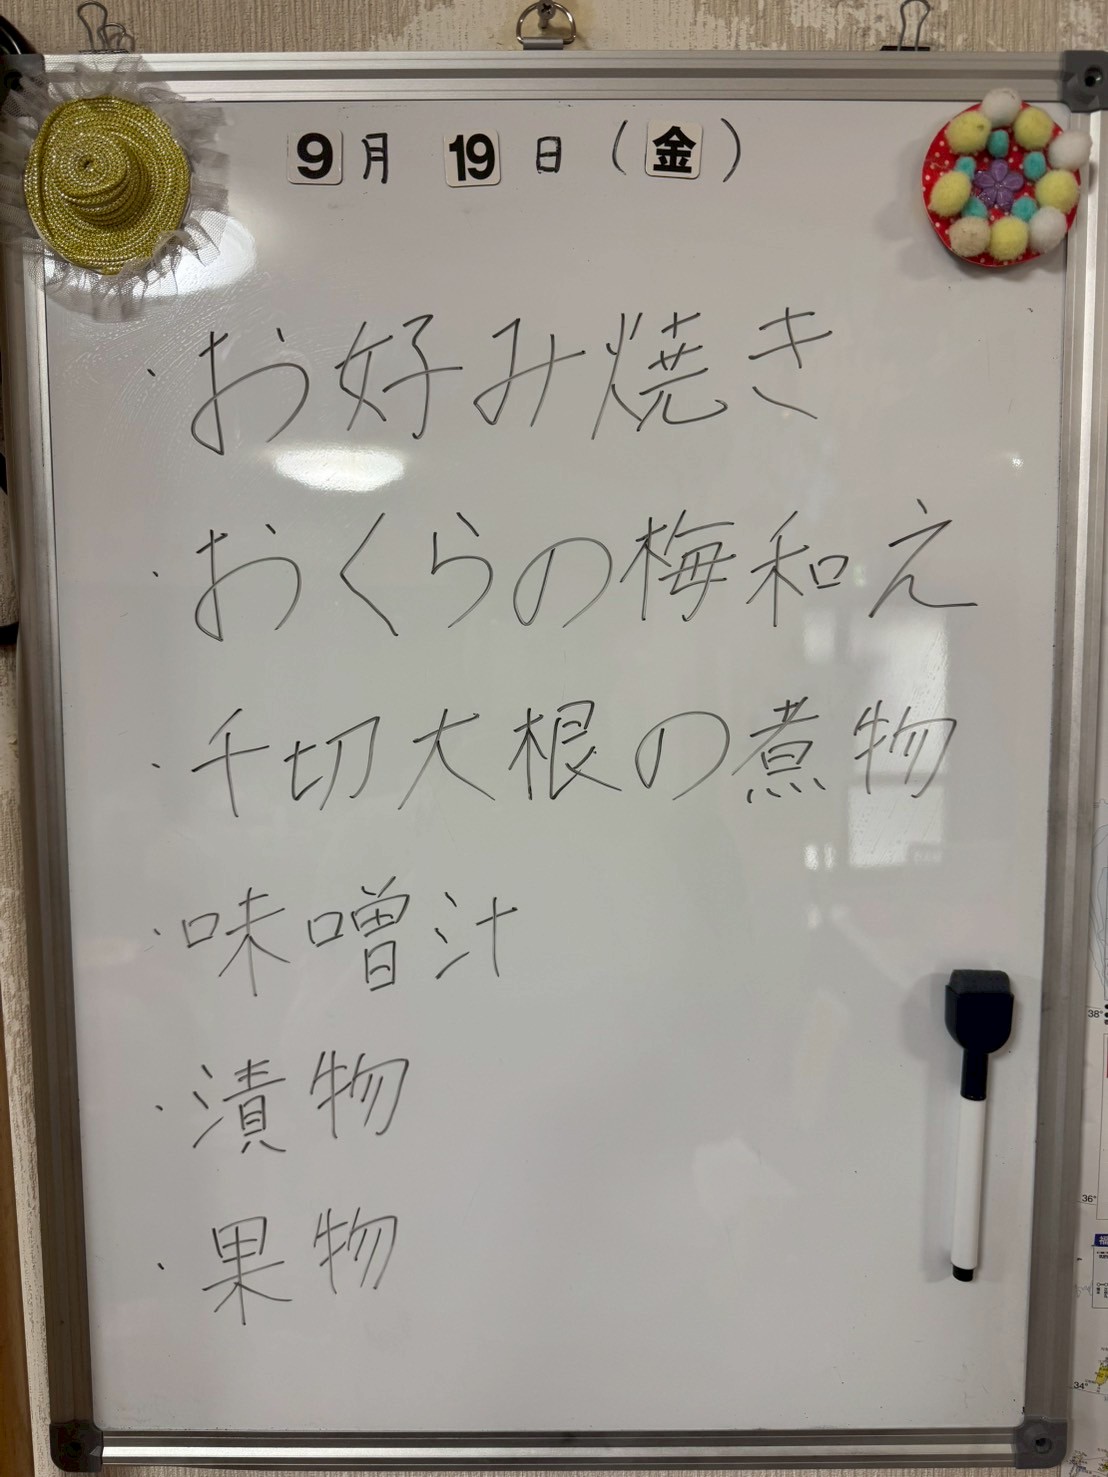 9月 19日 (金)
・お好み焼き
・おくらの梅和え
・千切大根の煮物
・味噌汁
・漬物
・果物
38°
36°
34°